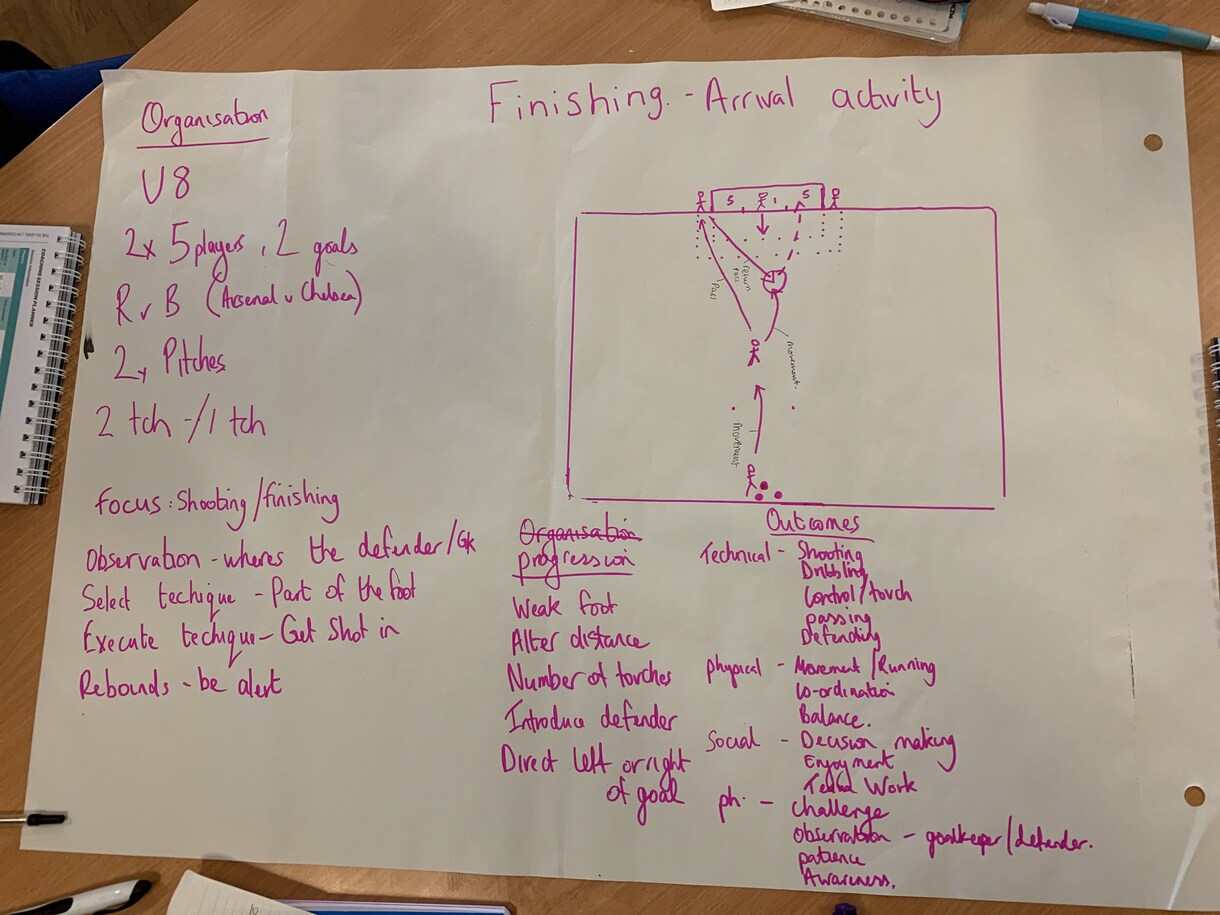 Finishing. - Arrival activity
Organisation
U8
2x 5 players, 2 goals
R v B (Arsenal v Chelsea)
2x Pitches
2 tch -/1 tch
focus: Shooting/finishing
Observation - wheres the defender/Gk
Select techique - Part of the foot
Execute techique - Get Shot in
Rebounds - be alert
5 1 5
Pass
return
pass
movement.
movement
Organisation
progression
Weak foot
Alter distance
Number of touches
Introduce defender
Direct left or right
of goal
Outcomes
Technical - Shooting
Dribbling
Control/touch
passing
Defending
physical - Movement/Running
Co-ordination
Balance.
Social - Decision making
Enjoyment
Team Work
ph. - Challenge
Observation - goalkeeper/defender.
patience
Awareness.
COACHING SESSION PLANNER